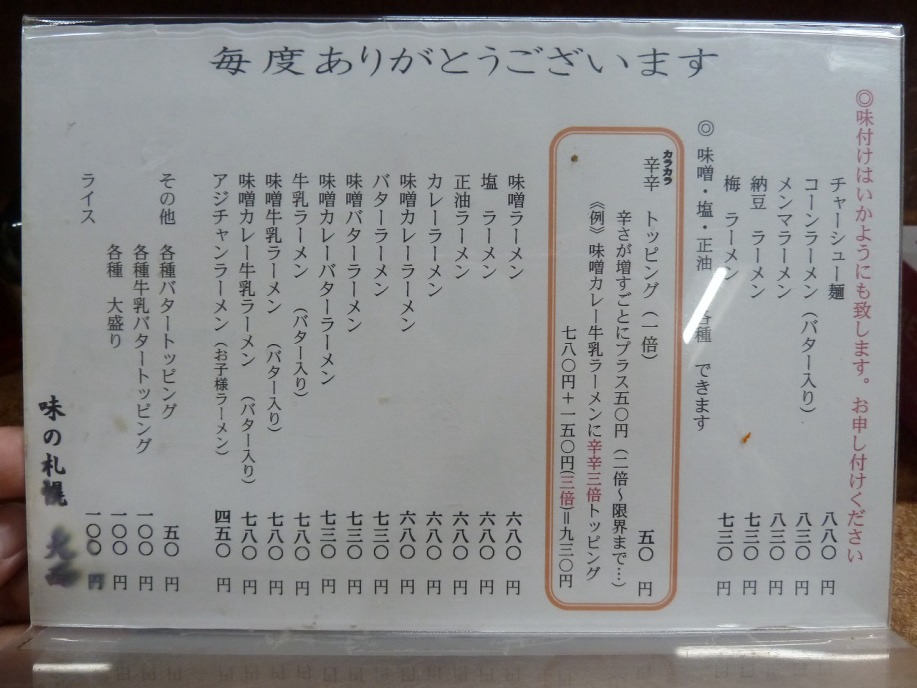 毎度ありがとうございます
◎味付けはいかようにも致します。お申し付けください
チャーシュー麺 八八〇円
コーンラーメン(バター入り) 八三〇円
メンマラーメン 八三〇円
納豆 ラーメン 七三〇円
梅 ラーメン 七三〇円
◎ 味噌・塩・正油 各種 できます
カラカラ
辛辛 トッピング(一倍) 五〇円
辛さが増すごとにプラス五〇円(二倍~限界まで…)
《例》味噌カレー牛乳ラーメンに辛辛三倍トッピング
七八〇円+一五〇円(三倍)=九三〇円
味噌ラーメン 六八〇円
塩 ラーメン 六八〇円
正油ラーメン 六八〇円
カレーラーメン 六八〇円
味噌カレーラーメン 六八〇円
バターラーメン 七三〇円
味噌バターラーメン 七三〇円
味噌カレーバターラーメン 七三〇円
牛乳ラーメン (バター入り) 七八〇円
味噌牛乳ラーメン (バター入り) 七八〇円
味噌カレー牛乳ラーメン (バター入り) 七八〇円
アジチャンラーメン(お子様ラーメン) 四五〇円
その他 各種バタートッピング 五〇円
各種牛乳バタートッピング 一〇〇円
各種 大盛り 一〇〇円
ライス 一〇〇円
味の札幌